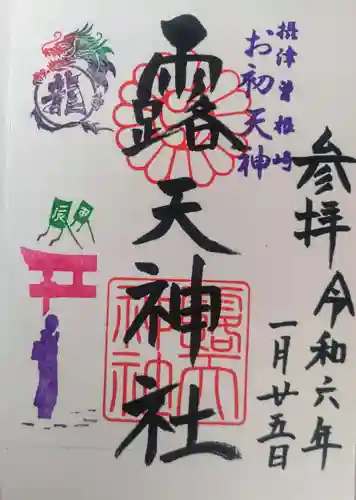 参拝
令和六年
一月廿五日
摂津曽根崎
お初天神
露天神社
露天
神社
龍
辰
甲